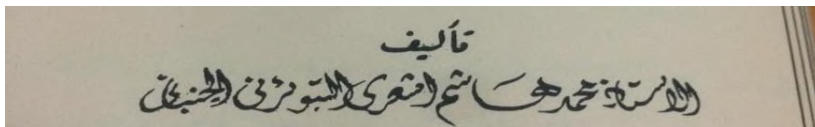 تأليف
الاستاذ محمد هاشم اشعرى التبوئرنى الجنباني